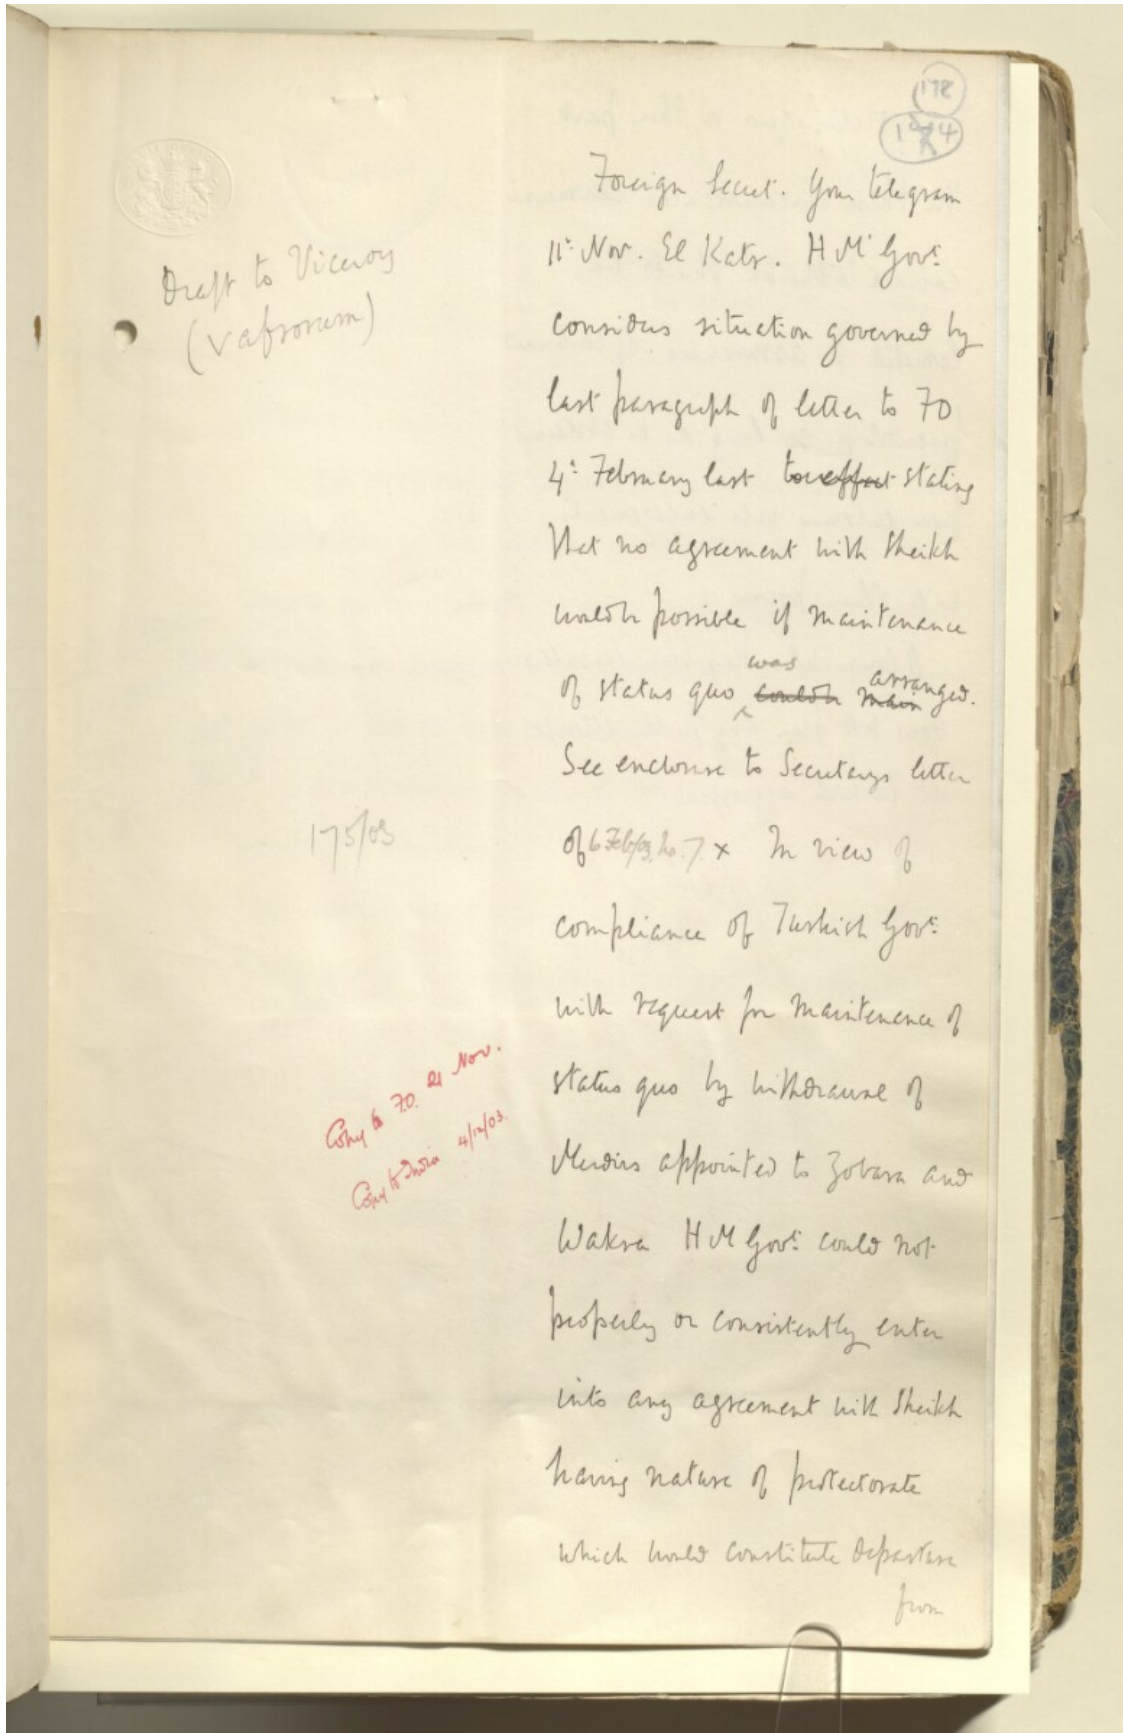 178
Draft to Viceroy
(Vafsorum)
Foreign Secret. Your telegram
11th Nov. El Katr. H M Govt
considers situation governed by
last paragraph of letter to FO
4th February last to effect stating
that no agreement with Sheikh
would be possible if maintenance
of status quo was could be main arranged.
See enclosure to Secretarys letter
of 6 Feb/03, No. 7. x In view of
175/03
compliance of Turkish Govt
with request for maintenance of
status quo by withdrawal of
Mudirs appointed to Zobara and
Wakra H M Govt could not
properly or consistently enter
into any agreement with Sheikh
having nature of protectorate
which would constitute departure
from
Copy to F.O. 21 Nov.
Copy to India 4/12/03.